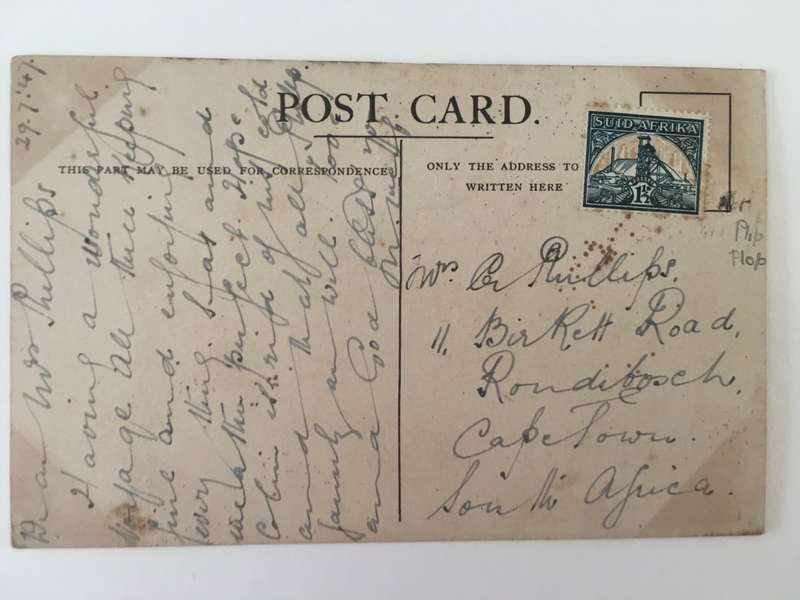 POST CARD.
THIS PART MAY BE USED FOR CORRESPONDENCE
ONLY THE ADDRESS TO
WRITTEN HERE
SUID-AFRIKA
1½
29.7.47.
Dear Mrs Phillips
Having a wonderful
voyage All three keeping
fine and enjoying
every thing. Seas and
weather perfect Hope
Colin is rid of his cold
and that all the Phillips
family are well. too
and God bless you
Mrs C Phillips.
11, Birkett Road,
Rondibosch,
Cape Town.
South Africa.
Flip
Flop